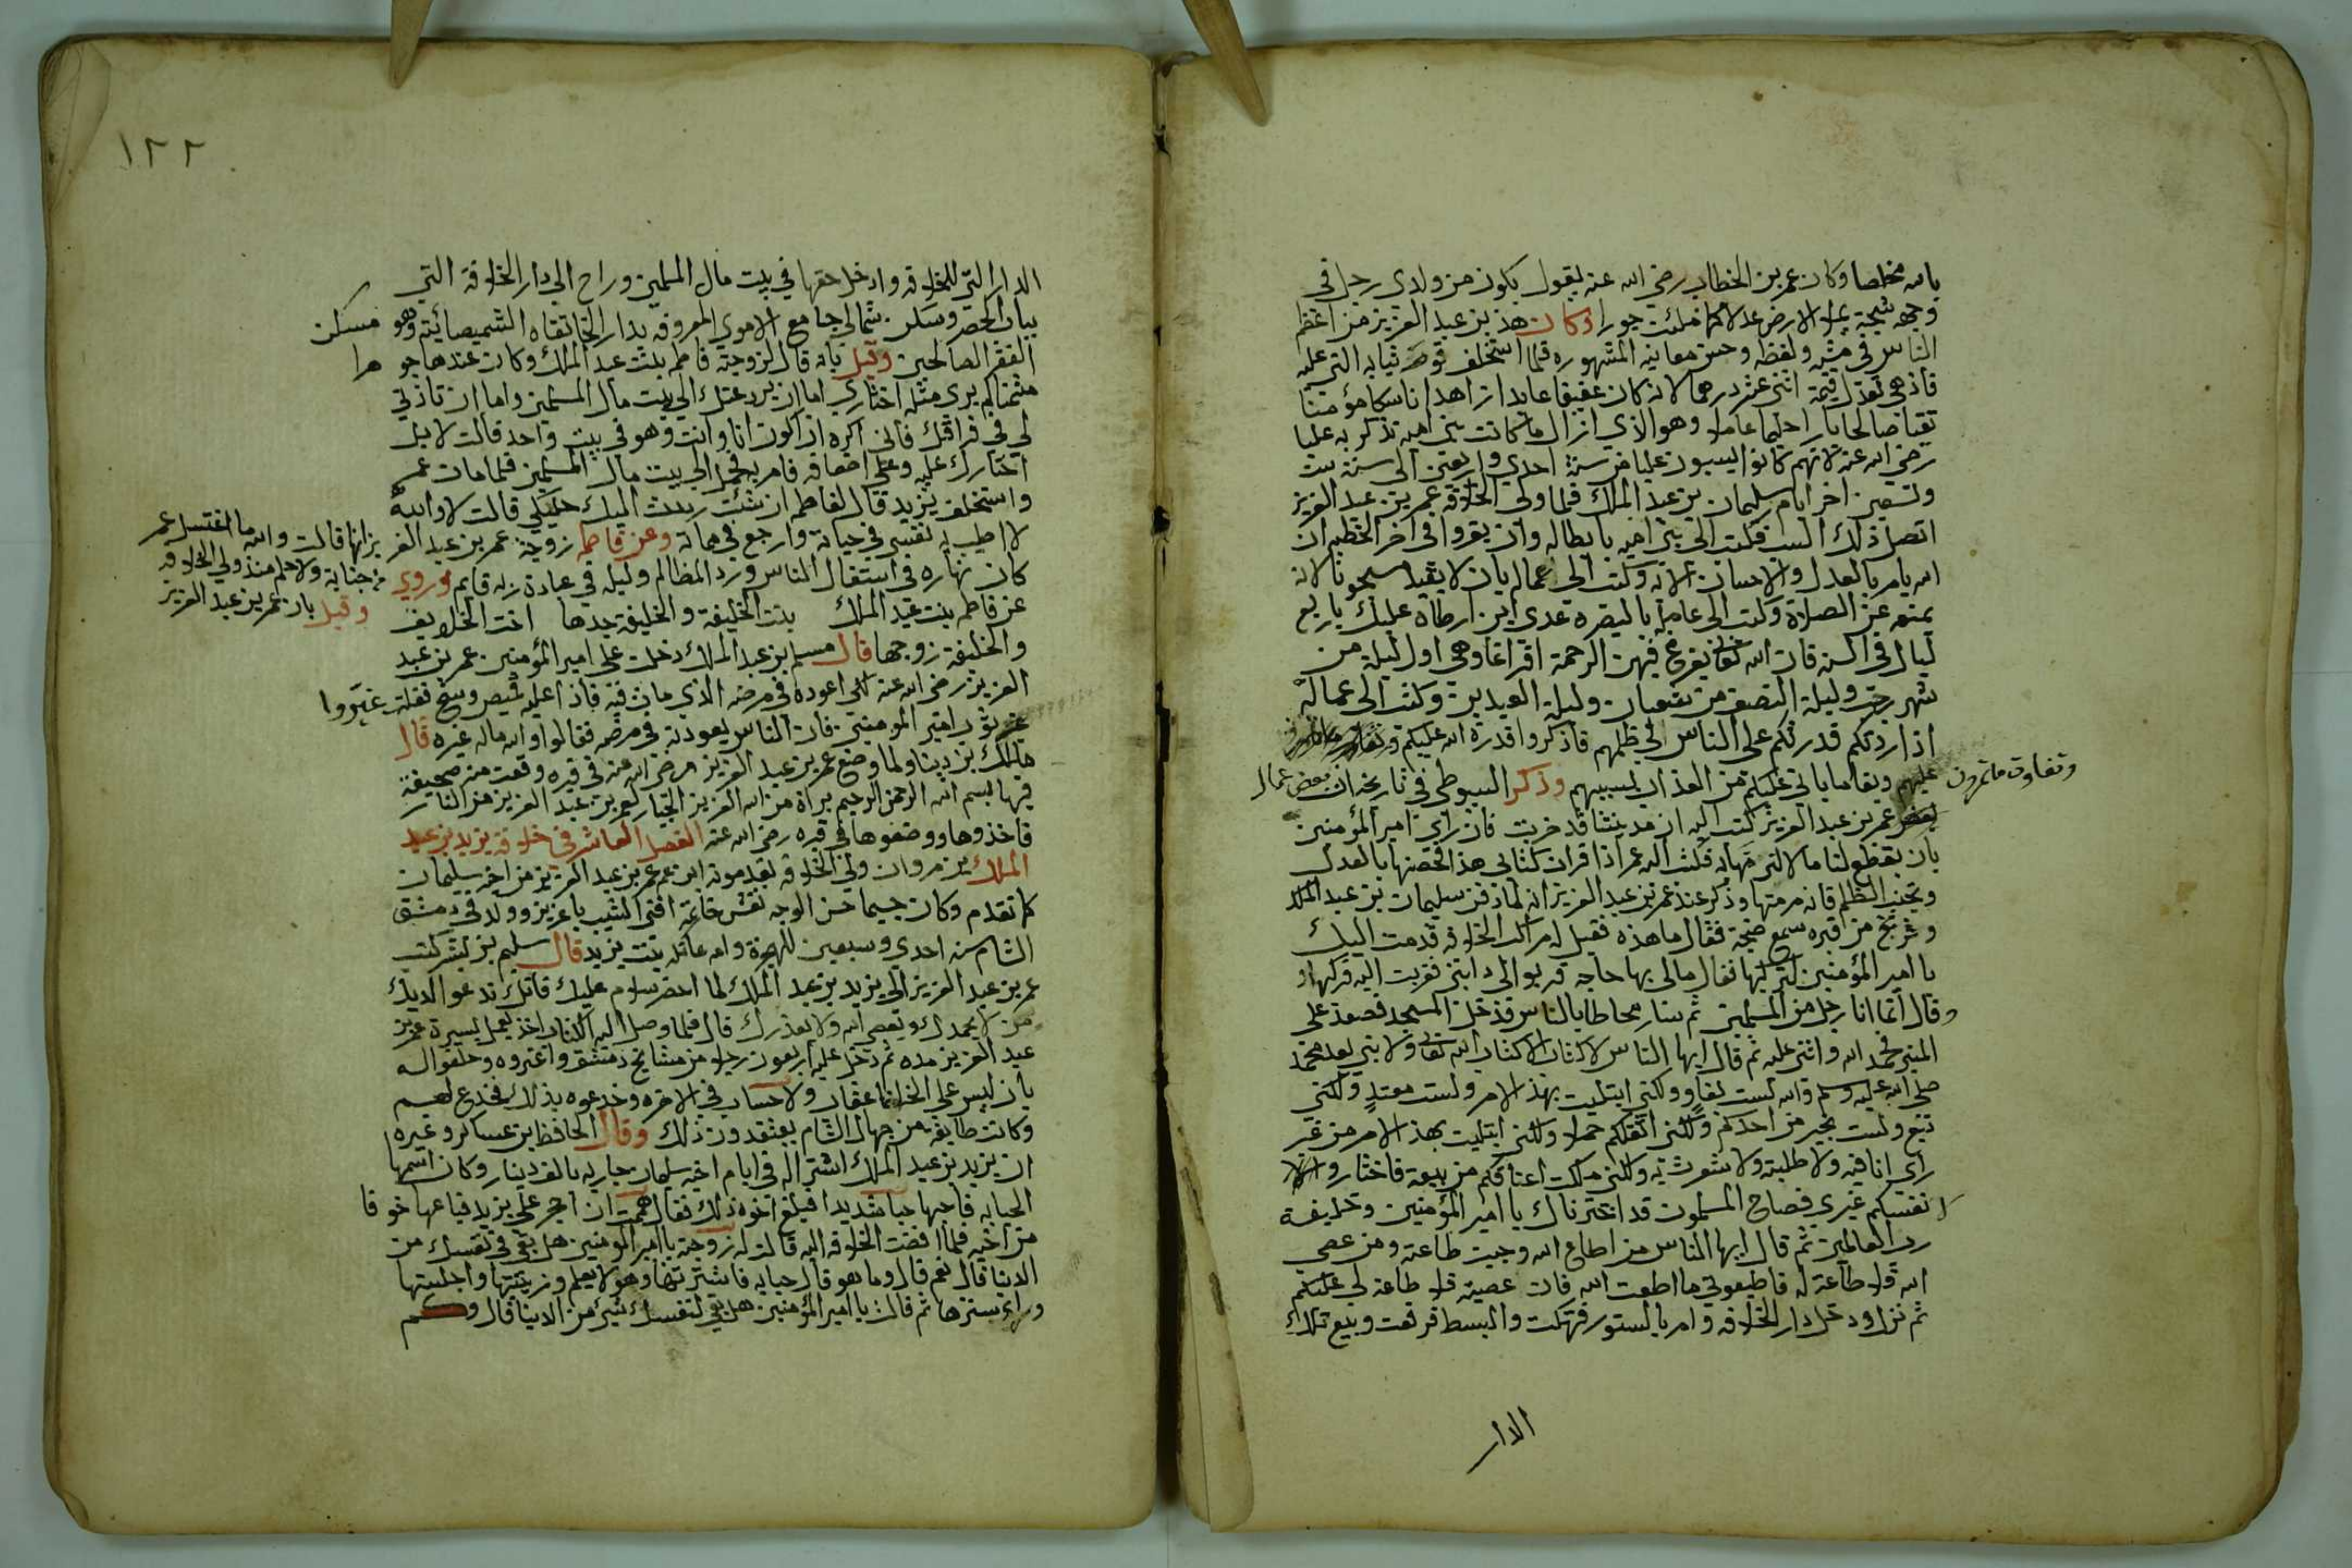 بالله مخلصا وكان عمر بن الخطاب رضي الله عنه يقول يكون من ولدي رجل في
وجهه شجة يملا الارض عدلا كما ملئت جورا وكان هذ بن عبد العزيز من اعظم
الناس في مشيه ولفظه وحسن معاينه المشهوره فلما استخلف قوم ثيابه التي عليه
فاذ هي تعدل قيمة اثني عشر درهما لانه كان عفيفا عابدا زاهدا ناسكا مؤمنا
تقيا صالحا بارا حليما عاملا وهو الذي ازال ما كانت بني اميه تذكر به عليا
رضي الله عنه لانهم كانوا يسبون عليا من سنة احدي واربعين الي سنة ست
وتسعين اخر ايام سليمان بن عبد الملك فلما ولي الخلافه عمر بن عبد العزيز
اتصل ذلك السب فكتب الي بني اميه بابطاله وان يقروا في اخر الخطبه ان
الله يامر بالعدل والاحسان الايه وكتب الي عماله بان لا يقيد مسجونا لانه
يمنع عن الصلاة وكتب الي عامله بالبصره عدي ابن ارطاه عليك باربع
ليال في السنه فان الله تعالي يفرغ فيهن الرحمة افراغا وهي اول ليلة من
شهر رجب وليلة النصف من شعبان وليلة العيدين وكتب الي عماله
اذا ردتكم قدرتكم علي الناس الي ظلمهم فاذكروا قدرة الله عليكم
وتفاوت ما تمرون
عليهم وبقا ما ياتي عليكم من العذاب بسببهم وذكر السيوطي في تاريخه ان بعض عمال
عمر بن عبد العزيز كتب اليه ان مدينتنا قد خربت فان راي امير المؤمنين
بان يقطع لنا مالا لترمها به فكتب اليه عمر اذا قرات كتابي هذا فحصنها بالعدل
وتجنب الظلم فانه مرمتها وذكر عند عمر بن عبد العزيز انه لما دفن سليمان بن عبد الملك
وخرج من قبره سمع ضجة فقال ما هذه فقيل له مراكب الخلافه قدمت اليك
يا امير المؤمنين لتركبها فقال مالي بها حاجه قربوا الي دابتي فقربت اليه فركبها
وقال انما انا رجل من المسلمين ثم سار محاطا بالناس فدخل المسجد فصعد علي
المنبر فحمد الله واثني عليه ثم قال ايها الناس لا كتاب الا كتاب الله تعالي ولا نبي بعد محمد
صلي الله عليه وسلم والله لست بقاض ولكني ابتليت بهذ الامر ولست معتد ولكني
تبع ولست بخير من احدكم ولكني اثقلكم حملا ولكني ابتليت بهذ الامر من غير
راي انا فيه ولا طلبته ولا شعرت به ولكني ملكت اعناقكم من بيعة فاختاروا
لانفسكم غيري فصاح المسلمون قد اخترناك يا امير المؤمنين وخليفة
رب العالمين ثم قال ايها الناس من اطاع الله وجبت طاعته ومن عصي
الله فلا طاعة له فاطيعوني ما اطعت الله فان عصيته فلا طاعة لي عليكم
ثم نزل ودخل دار الخلافه وامر بالستور فهتكت والبسط فرفعت وبيع تلك
الدار
١٢٢
الدار التي للخلافه وادخل حقها في بيت مال المسلمين وراح الي دار الخلافة التي
بباب الخضر وسكن شمالي جامع الاموي المعروفه بدار الخانقاه الشميصائية وهو مسكن
الفقرا الصالحين وقيل بانه قال لزوجته فاطمه بنت عبد الملك وكان عندها جوهرا
مثمنا لم يري مثله اختاري اما ان يرد عنك الي بيت مال المسلمين واما ان تاذني
لي في فراقك فاني اكره ان اكون انا وانت وهو في بيت واحد قالت لا بل
اختارك عليه وعلي اضعافه فامر به فحمل الي بيت مال المسلمين فلما مات عمر
واستخلف يزيد قال لفاطمه ان شئت رددت اليك حليكي قالت لا والله
لا اطيب به نفسي في حياته وارجع في مماته وعن فاطمه زوجة عمر بن عبد العزيز انها قالت والله ما اغتسل عمر
من جنابة ولا حلم منذ ولي الخلافه
كان نهاره في اشتغال الناس ورد المظالم وليله في عبادة ربه قايم وروي
وقيل بان عمر بن عبد العزيز
عن فاطمه بنت عبد الملك بنت الخليفة والخليفة جدها اخت الخلايف
والخليفة زوجها قال مسلم بن عبد الملك دخلت علي امير المؤمنين عمر بن عبد
العزيز رضي الله عنه لكي اعوده في مرضه الذي مات فيه فاذا عليه قميص وسخ فقلت غيروا
ثوب امير المومنين فان الناس يعودنه في مرضه فقالوا والله ماله غيره قال
مالك بن دينار ولما وضع عمر بن عبد العزيز رضي الله عنه في قبره وقعت منه صحيفة
فيها بسم الله الرحمن الرحيم براة من الله العزيز الجبار لعمر بن عبد العزيز من النار
فاخذوها ووضعوها في قبره رضي الله عنه الفصل العاشر في خلافة يزيد بن عبد
الملك بن مروان ولي الخلافه بعد موت ابن عمه عمر بن عبد العزيز من اخيه سليمان
كما تقدم وكان جسيما حسن الوجه نقش خاتمه افني الشيب يا عزيز وولد في دمشق
الشام سنه احدي وسبعين للهجرة وامه عاتكه بنت يزيد قال سليم بن بشر كتب
عمر بن عبد العزيز الي يزيد بن عبد الملك لما احضر سلام عليك فانك تدعو الديك
من لا يحمدك ويعصي الله ولا يعذرك قال فلما وصل اليه الكتاب اخذ يعمل بسيرة عمر بن
عبد العزيز مده ثم دخل عليه اربعون رجلا من مشايخ دمشق واغروه وحلفوا له
بان ليس علي الخلفا عقاب ولا حساب في الاخره وخدعوه بذلك فخدع لهم
وكانت طايفة من جهال الشام يعتقدون ذلك وقال الحافظ بن عساكر وغيره
ان يزيد بن عبد الملك اشترا له في ايام اخيه سليمان جاريه بالف دينار وكان اسمها
الحبابه فاحبها حبا شديدا فبلغ اخوه ذلك فقال هممت ان احجر علي يزيد فباعها خوفا
من اخيه فلما افضت الخلافه اليه قالت له زوجته يا امير المومنين هل بقي في نفسك من
الدنيا قال نعم قال وما هو قال حبابه فاشترتها وهو لا يعلم وزينتها واجلستها
وراء سترها ثم قالت يا امير المؤمنين هل بقي لنفسك شيء من الدنيا قال وكم